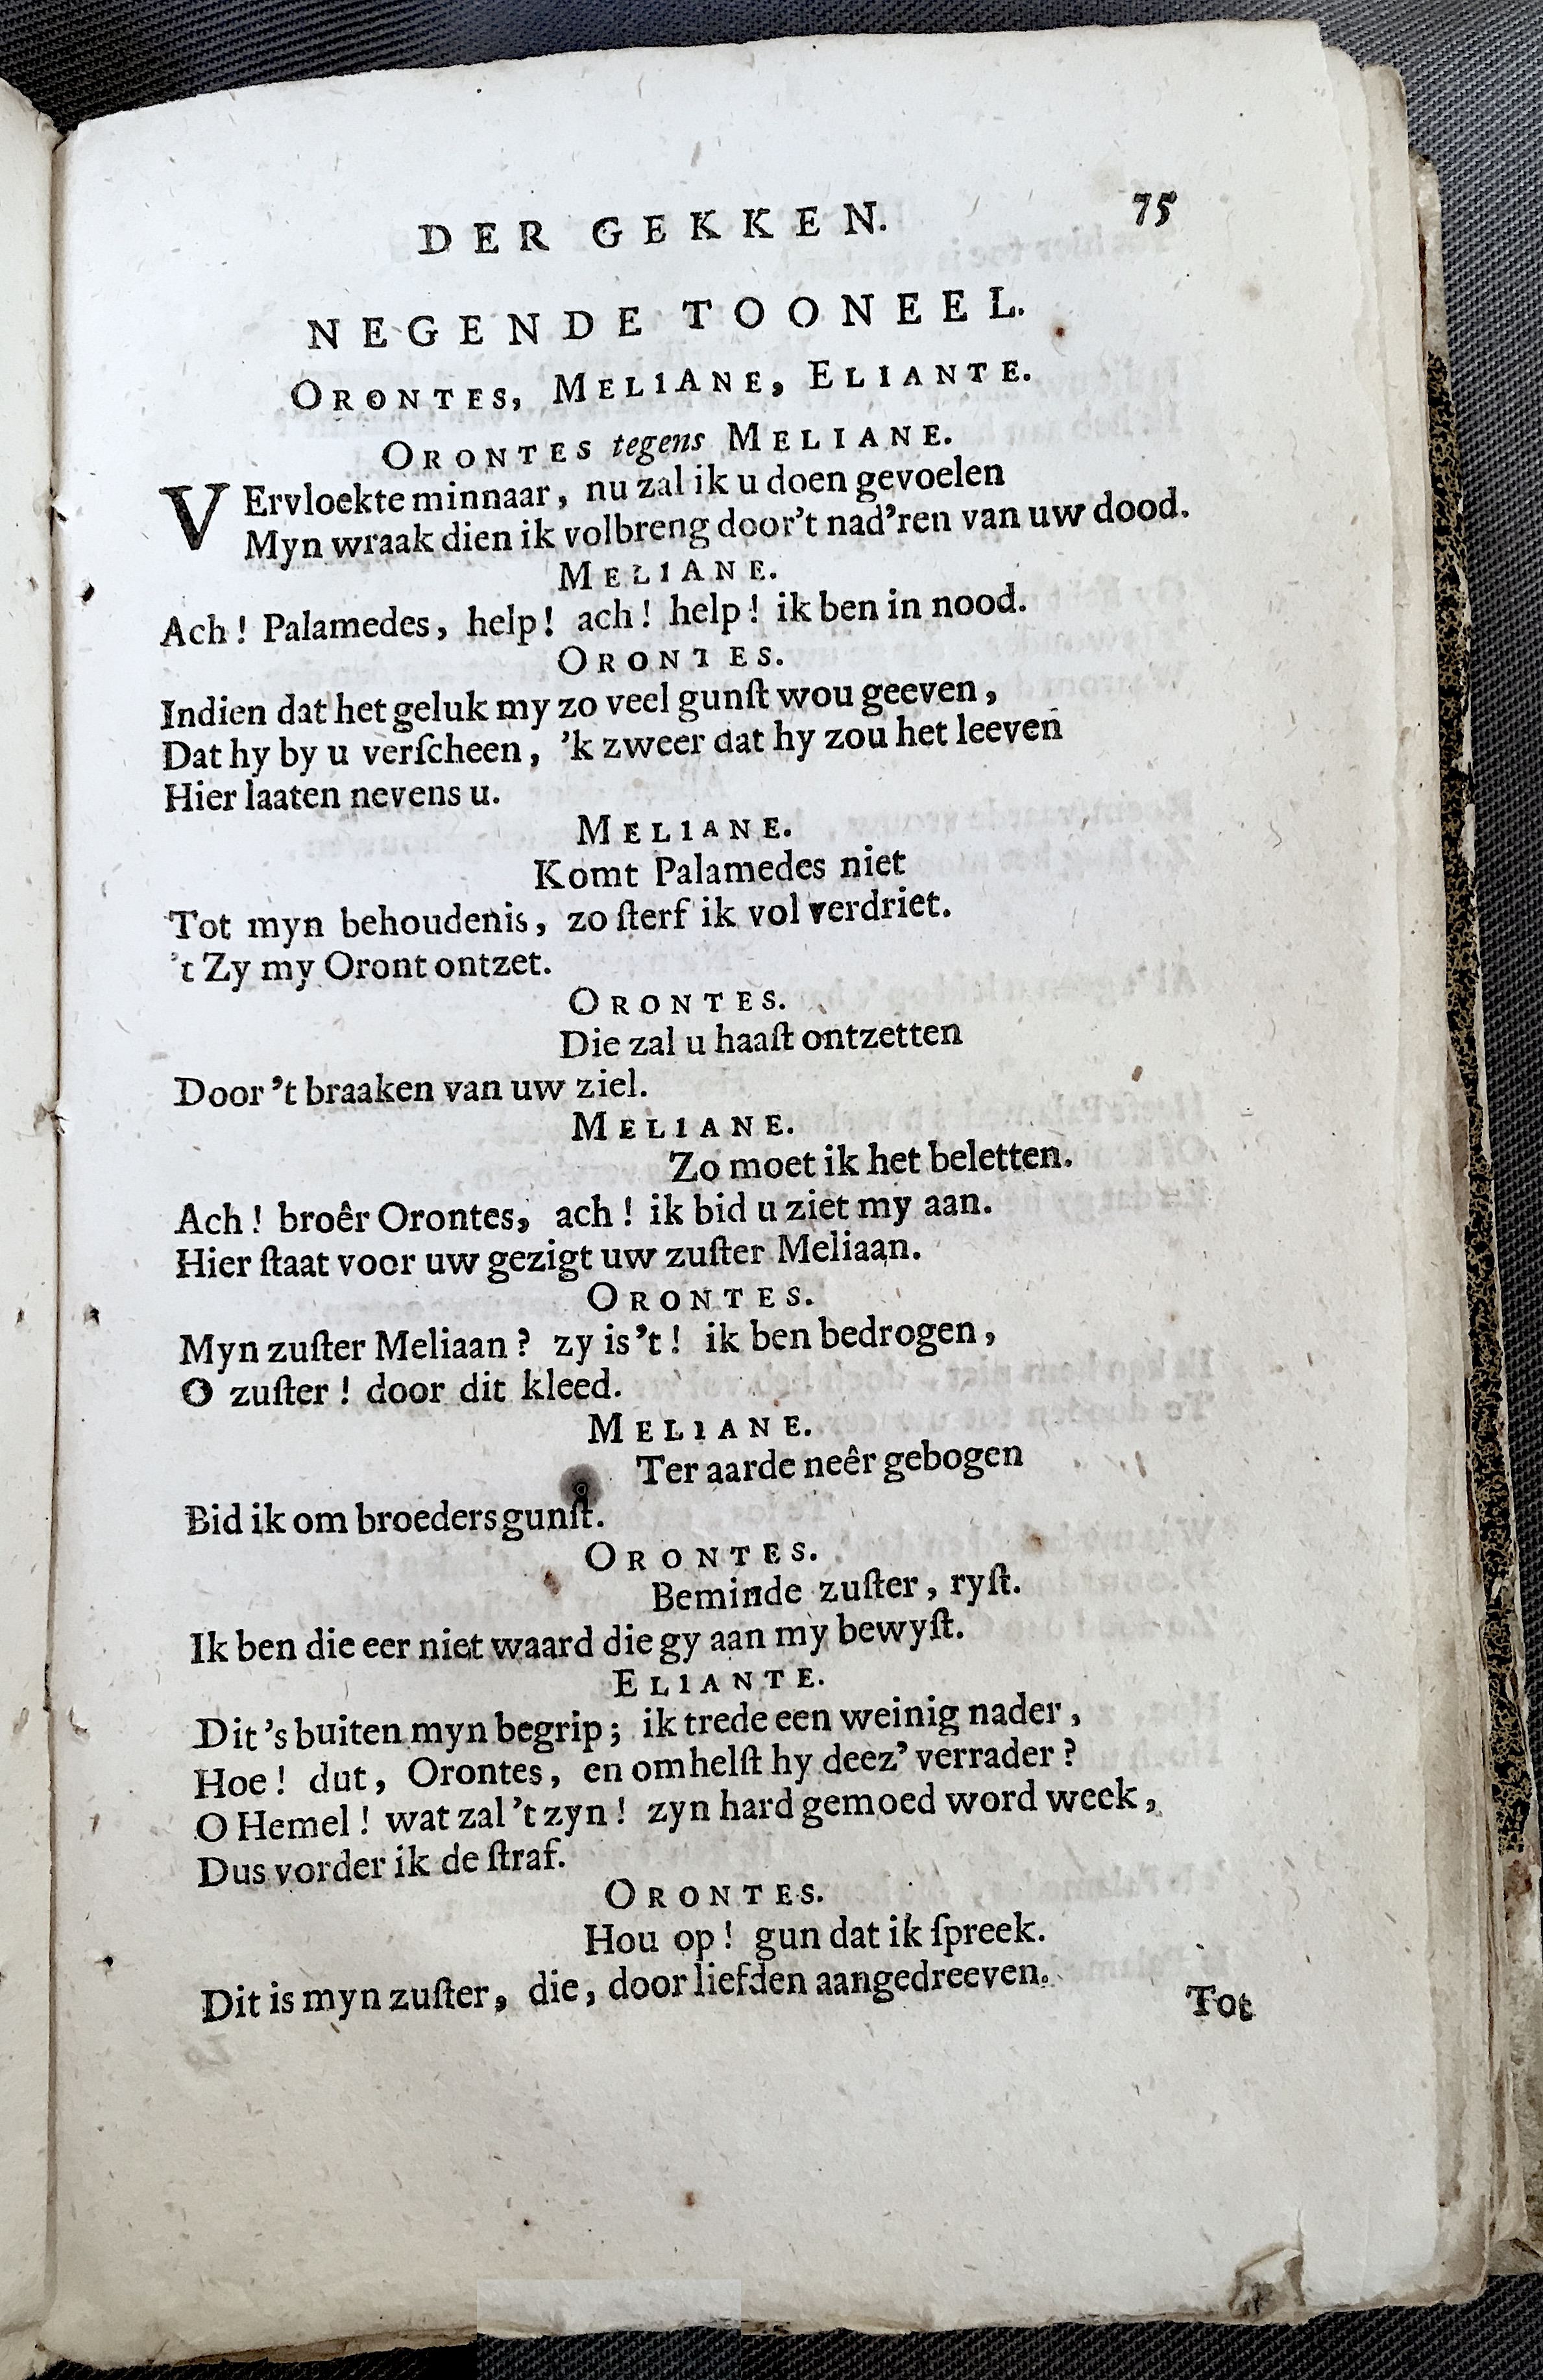 DER GEKKEN. 75
NEGENDE TOONEEL.
ORONTES, MELIANE, ELIANTE.
ORONTES tegens MELIANE.
VErvloekte minnaar, nu zal ik u doen gevoelen
Myn wraak dien ik volbreng door't nad'ren van uw dood.
MELIANE.
Ach! Palamedes, help! ach! help! ik ben in nood.
ORONTES.
Indien dat het geluk my zo veel gunſt wou geeven,
Dat hy by u verſcheen, 'k zweer dat hy zou het leeven
Hier laaten nevens u.
MELIANE.
Komt Palamedes niet
Tot myn behoudenis, zo ſterf ik vol verdriet.
't Zy my Oront ontzet.
ORONTES.
Die zal u haaſt ontzetten
Door 't braaken van uw ziel.
MELIANE.
Zo moet ik het beletten.
Ach! broêr Orontes, ach! ik bid u ziet my aan.
Hier ſtaat voor uw gezigt uw zuſter Meliaan.
ORONTES.
Myn zuſter Meliaan? zy is't! ik ben bedrogen,
O zuſter! door dit kleed.
MELIANE.
Ter aarde neêr gebogen
Bid ik om broeders gunſt.
ORONTES.
Beminde zuſter, ryſt.
Ik ben die eer niet waard die gy aan my bewyſt.
ELIANTE.
Dit 's buiten myn begrip; ik trede een weinig nader,
Hoe! dut, Orontes, en omhelſt hy deez' verrader?
O Hemel! wat zal 't zyn! zyn hard gemoed word week,
Dus vorder ik de ſtraf.
ORONTES.
Hou op! gun dat ik ſpreek.
Dit is myn zuſter, die, door liefden aangedreeven.
Tot